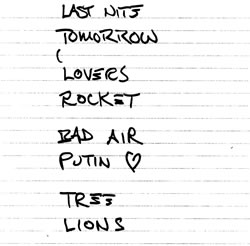 LAST NITE
TOMORROW
(
LOVERS
ROCKET
BAD AIR
PUTIN ♡
TREE
LIONS